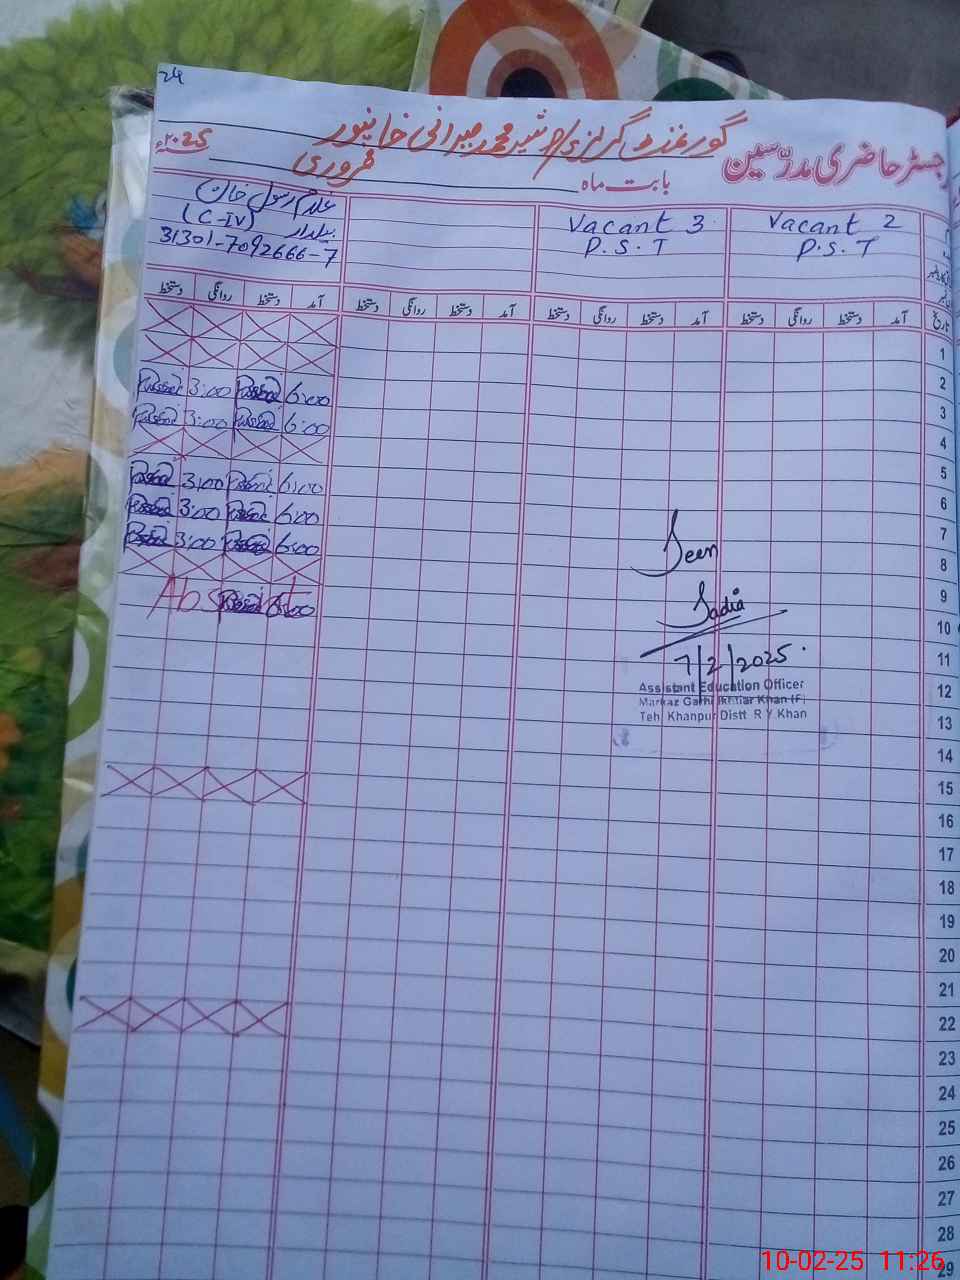 24
رجسٹر حاضری مدرّسین گورنمنٹ گرلز پرائمری رشید محمد میرانی خانپور
بابت ماہ فروری 2025ء
Vacant 2
P.S.T
Vacant 3
P.S.T
غلام رسول خان
(C-IV) بیلدار
31301-7092666-7
تاریخ آمد دستخط روانگی دستخط آمد دستخط روانگی دستخط آمد دستخط روانگی دستخط آمد دستخط روانگی دستخط
1
2
3 6:00 3:00
4 6:00 3:00
5
6 6:00 3:00
7 6:00 3:00
8 6:00 3:00
9
10 6:00 Absent
11
12
13
14
15
16
17
18
19
20
21
22
23
24
25
26
27
28
29
Seen
Sadia
7/2/2025
Assistant Education Officer
Markaz Garhi Ikhtiar Khan (F)
Teh Khanpur Distt R Y Khan
10-02-25 11:26